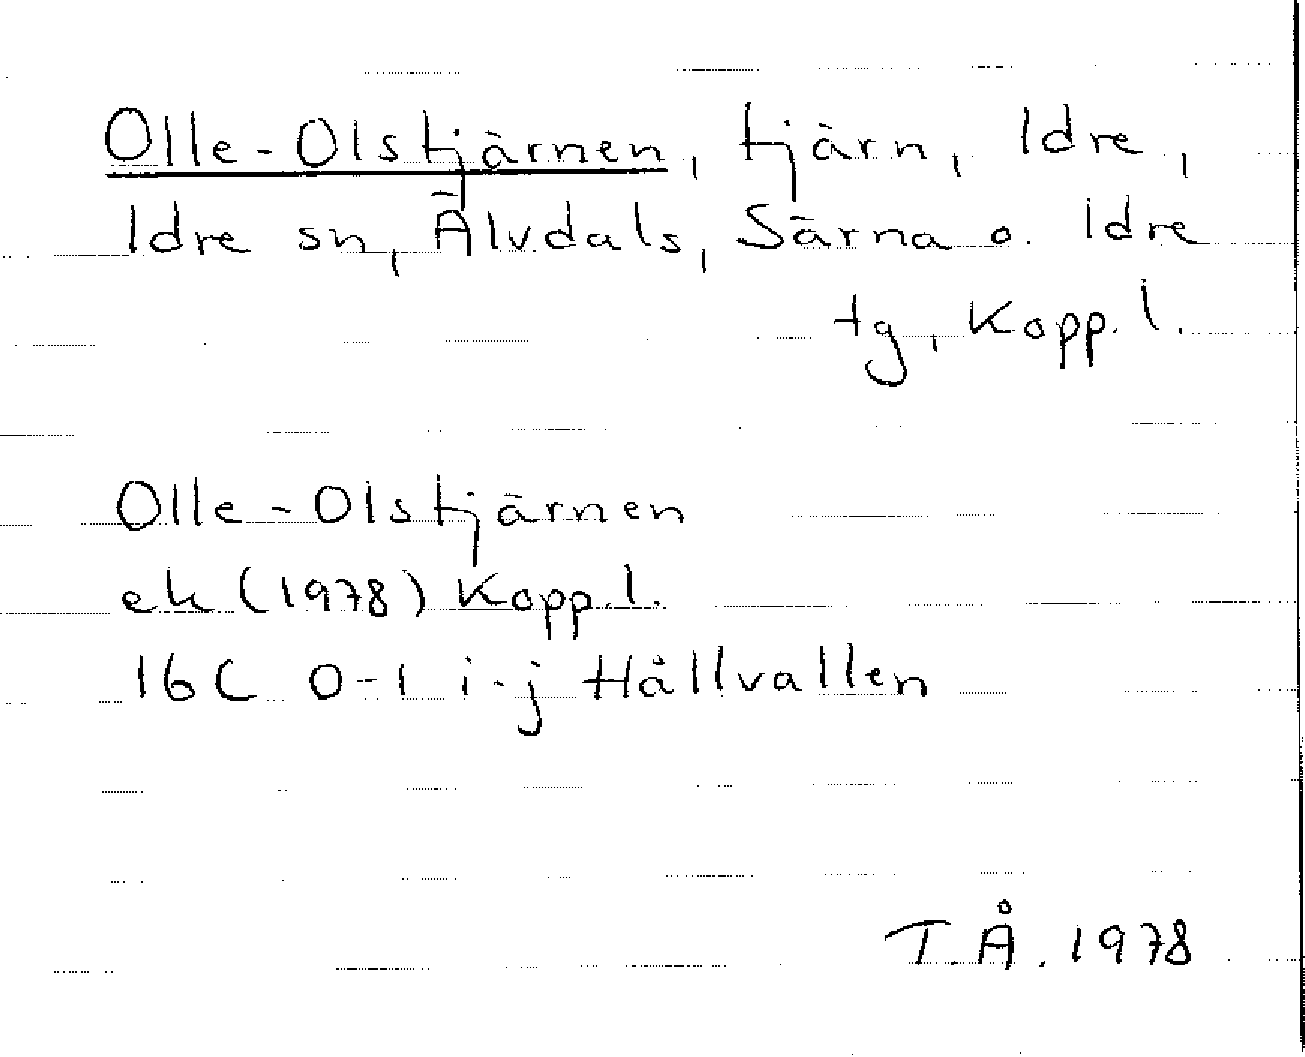 Olle-Olstjärnen, tjärn, Idre,
Idre sn, Älvdals, Särna o. Idre
tg, Kopp. l.
Olle-Olstjärnen
ek (1978) Kopp. l.
16C 0-1 i-j Hållvallen
T.Å. 1978